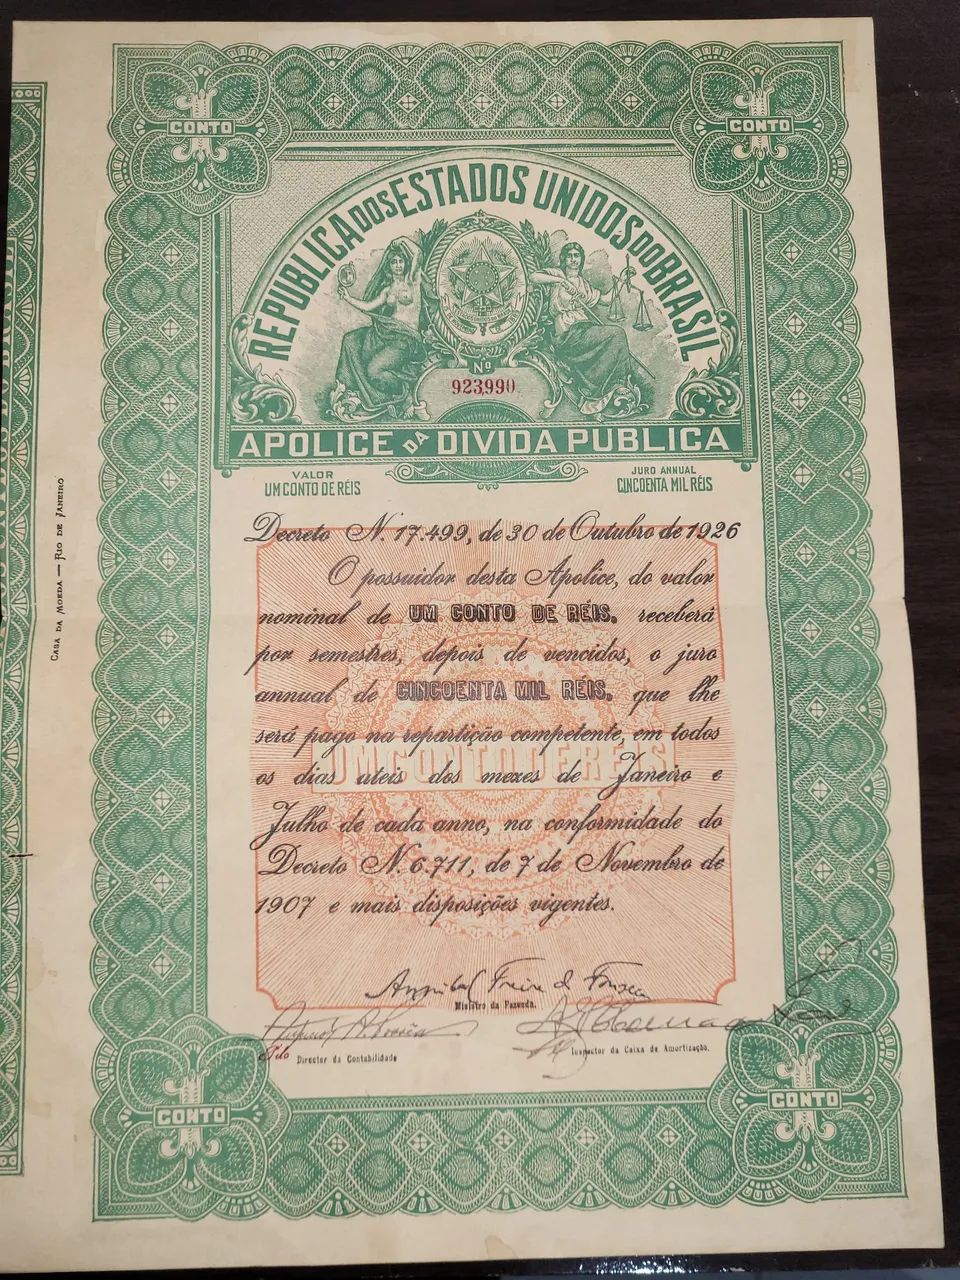 1 CONTO
1 CONTO
REPUBLICA DOS ESTADOS UNIDOS DO BRASIL
Nº
923,990
APOLICE DA DIVIDA PUBLICA
VALOR
UM CONTO DE RÉIS
JURO ANNUAL
CINCOENTA MIL RÉIS
Decreto N. 17.499, de 30 de Outubro de 1926
O possuidor desta Apolice, do valor
nominal de UM CONTO DE RÉIS, receberá
por semestres, depois de vencidos, o juro
annual de CINCOENTA MIL RÉIS, que lhe
será pago na repartição competente, em todos
os dias uteis dos mezes de Janeiro e
Julho de cada anno, na conformidade do
Decreto N. 6.711, de 7 de Novembro de
1907 e mais disposições vigentes.
UM CONTO DE RÉIS
Annibal Freire da Fonseca
Ministro da Fazenda.
Director da Contabilidade
Inspector da Caixa de Amortização.
1 CONTO
1 CONTO
CASA DA MOEDA — RIO DE JANEIRO